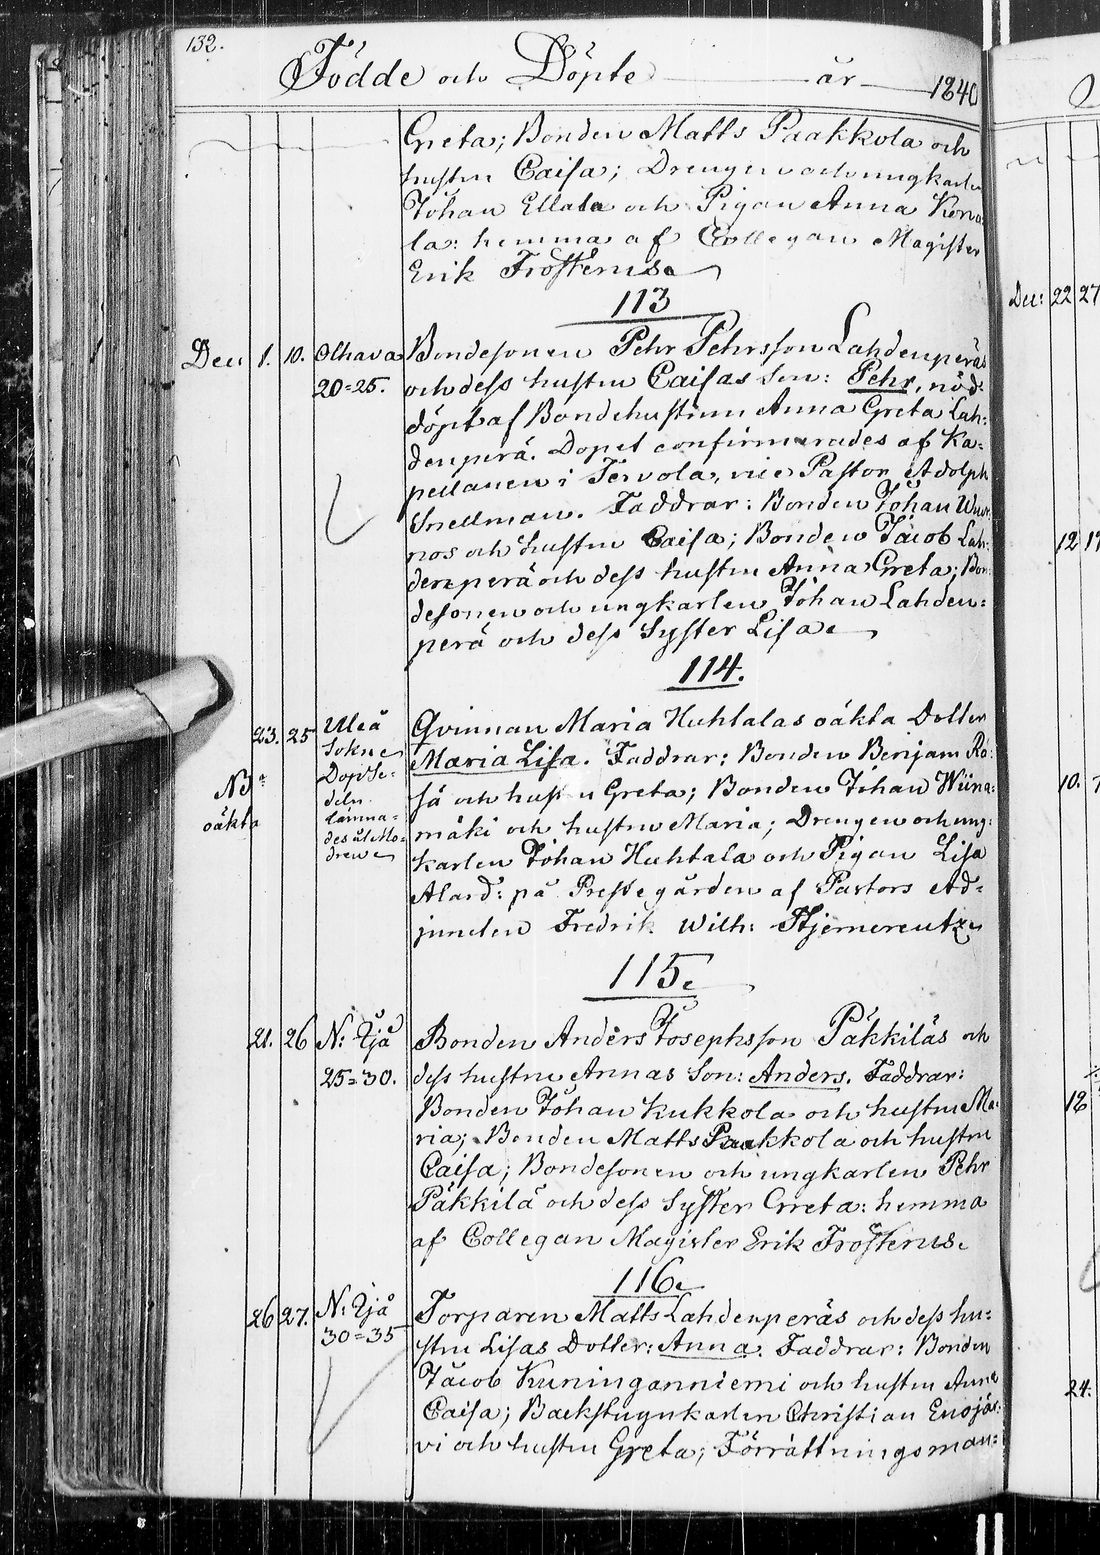 132.
Födde och Döpte år 1840
Greta; Bonden Matts Paakkola och
hustru Caisa; Drengen och ungkarlen
Johan Ellala och Pigan Anna Kervo
la: hemma af Collegan Magister
Erik Frosterus.
113
Dec 1. 10. Olhava Bondesonen Pehr Pehrsson Lahdenperäs
20=25. och dess hustru Caisas Son: Pehr, nöd=
döpt af Bondehustrun Anna Greta Lah=
denperä. Dopet confirmerades af Ka=
pellanen i Tervola, vice Pastor Adolph
Snellman. Faddrar: Bonden Johan
nos och hustru Caisa; Bonden Jacob Lah=
denperä och dess hustru Anna Greta; Bon=
desonen och ungkarlen Johan Lahden=
perä och dess Syster Lisa
114.
23. 25 Uleå Qvinnan Maria Huhtalas oäkta Dotter
Sokn Maria Lisa. Faddrar: Bonden Benjam Rä=
Dopse= sä och hustru Greta; Bonden Johan Wiina=
deln
lämna= mäki och hustru Maria; Drengen och ung=
des åt Mo=
dren karlen Johan Huhtala och Pigan Lisa
NB
oäkta
Alard: på Prestegården af Pastors Ad=
juncten Fredrik Wilh: Stjerncreutz
115.
21. 26 N: Ijå Bonden Anders Josephsson Päkkiläs och
25=30. dess hustru Annas Son: Anders. Faddrar:
Bonden Johan Kukkola och hustru Ma=
ria; Bonden Matts Paakkola och hustru
Caisa; Bondesonen och ungkarlen Pehr
Päkkilä och dess Syster Greta: hemma
af Collegan Magister Erik Frosterus.
116.
26 27. N: Ijå Torparen Matts Lahdenperäs och dess hu=
30=35 stru Lisas Dotter: Anna. Faddrar: Bonden
Jacob Kuninganniemi och hustru Anna
Caisa; Backstugukarlen Christian Enojär=
vi och hustru Greta; Förrättningsman=
Dec: 22 27
12 17
10.
18
24.